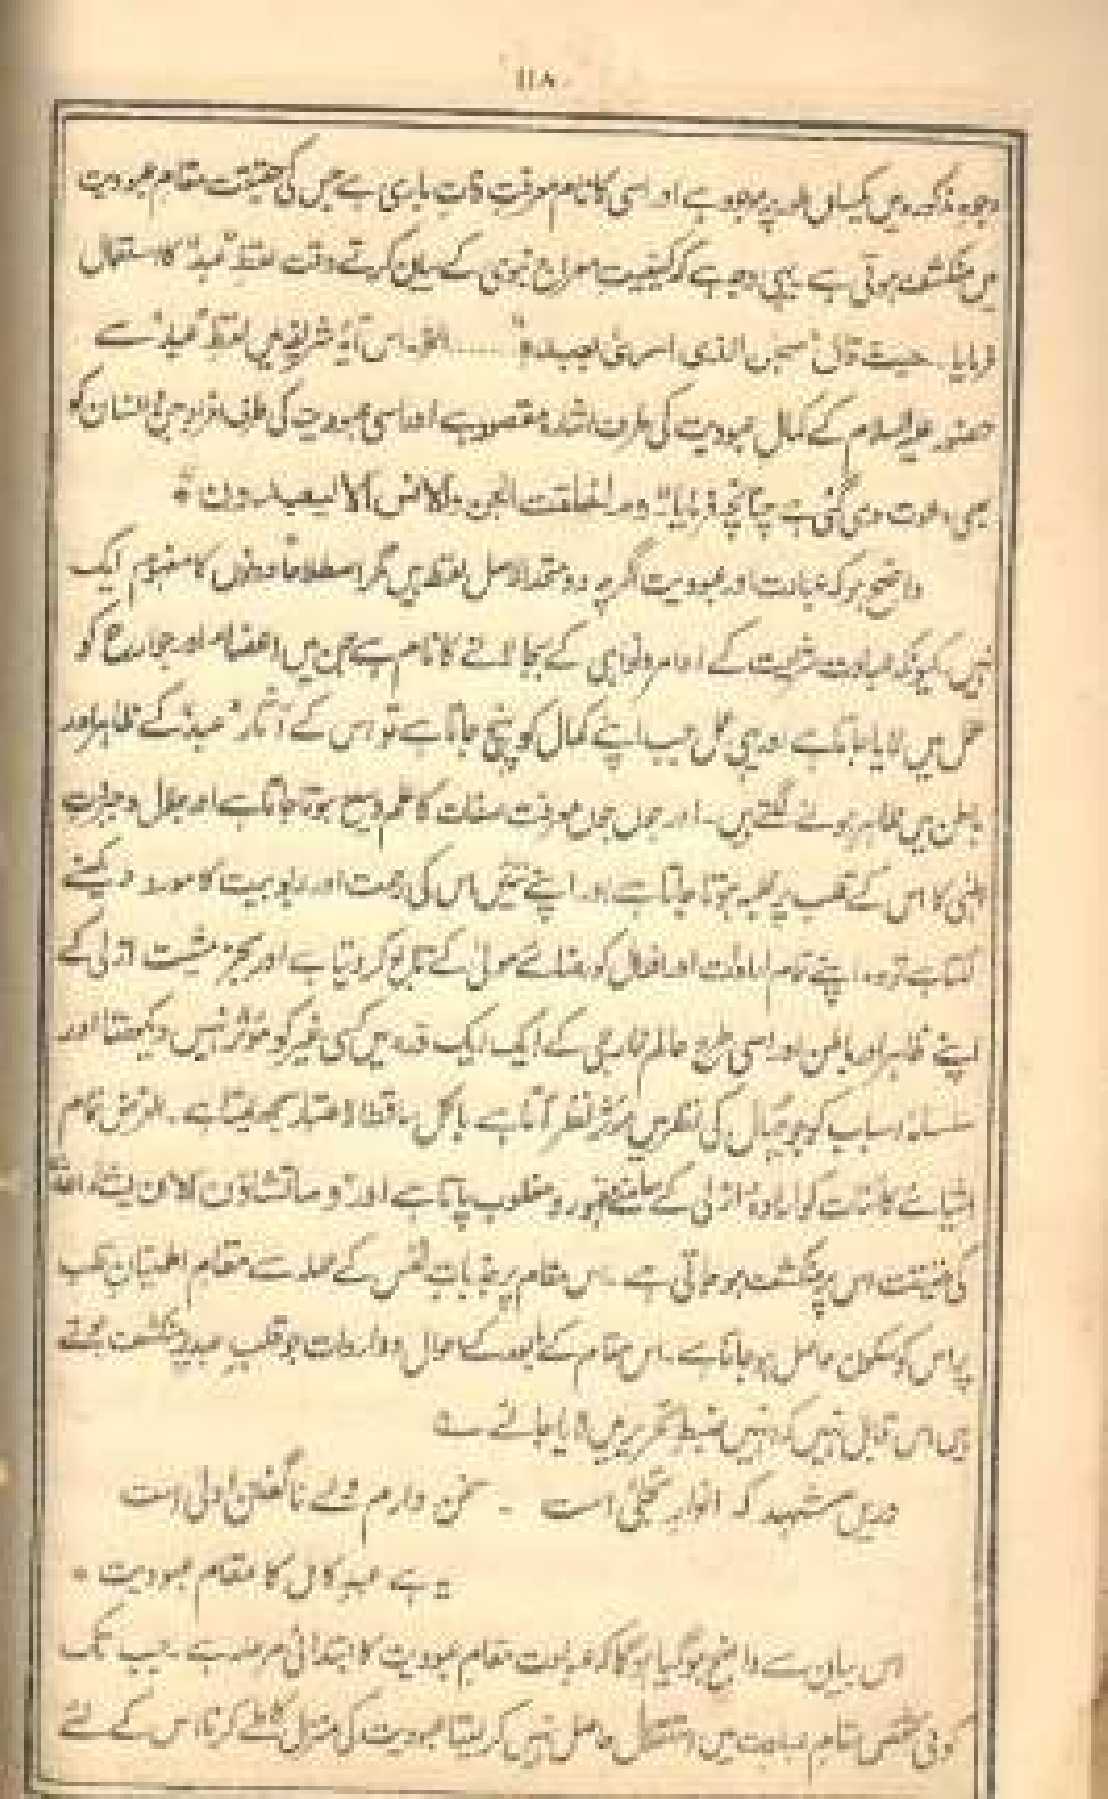 ۱۱۸
وجوہ مذکورہ میں یکساں طور پر موجود ہے اور اسی کا نام معرفتِ ذاتِ باری ہے جس کی حقیقت مقامِ عبودیت
میں منکشف ہوتی ہے یہی وجہ ہے کہ کیفیتِ معراج نبوی کے بیان کرتے وقت لفظ "عبد" کا استعمال
فرمایا۔ حیث قال "سبحٰن الذی اسریٰ بعبدہ" ...... الخ۔ اس آیۂ شریفہ میں لفظ "عبد" سے
حضور علیہ السلام کے کمالِ عبودیت کی طرف اشارہ مقصود ہے اور اسی عبودیت کی طرف افراد بنی انسان کو
بھی دعوت دی گئی ہے چنانچہ فرمایا "وما خلقت الجن والانس الا لیعبدون" *
واضح ہو کہ عبادت اور عبودیت اگرچہ دو متحد الاصل لفظ ہیں مگر اصطلاحاً دونوں کا مفہوم ایک
نہیں۔ کیونکہ عبادت شریعت کے اوامر و نواہی کے بجا لانے کا نام ہے جن میں اعضاء اور جوارح کو
عمل میں لایا جاتا ہے اور یہی عمل جب اپنے کمال کو پہنچ جاتا ہے تو اس کے آثار "عبد" کے ظاہر اور
باطن میں ظاہر ہونے لگتے ہیں۔ اور جوں جوں معرفت صفات کا علم وسیع ہوتا جاتا ہے اور جلال و جبروت
الٰہی کا اس کے قلب پر غلبہ ہوتا جاتا ہے اور اپنے تئیں اس کی رحمت اور ربوبیت کا مورد دیکھنے
لگتا ہے تو وہ اپنے تمام ارادات اور افعال کو رضائے مولیٰ کے تابع کر دیتا ہے اور بجز مشیت ازلی کے
اپنے ظاہر اور باطن اور اسی طرح عالم خارجی کے ایک ایک ذرہ میں کسی غیر کو مؤثر نہیں دیکھتا اور
سلسلۂ اسباب کو جو جہال کی نظر میں مؤثر نظر آتا ہے بالکل ساقط الاعتبار سمجھ لیتا ہے۔ الغرض تمام
اشیائے کائنات کو ارادۂ ازلی کے سامنے مقہور و مغلوب پاتا ہے اور "وما تشاؤن الا ان یشاء اللہ"
کی حقیقت اس پر منکشف ہو جاتی ہے۔ اس مقام پر جذباتِ نفس کے سے مقامِ اطمینانِ قلب
پر اس کو سکون حاصل ہو جاتا ہے۔ اس مقام کے بعد کے احوال و واردات جو قلبِ عبد پر منکشف ہوتے
ہیں اس قابل نہیں کہ انہیں ضبطِ تحریر میں لایا جائے ؎
دریں مشہد کہ انوارِ تجلیٰ است - سخن دارم ولے ناگفتن اولیٰ است
یہ ہے عبدِ کامل کا مقام عبودیت *
اس بیان سے واضح ہو گیا ہوگا کہ عبادت مقامِ عبودیت کا ابتدائی مرحلہ ہے۔ جب تک
کوئی شخص مقامِ عبادت میں استقلال حاصل نہیں کر لیتا عبودیت کی منزل طے کرنا اس کے لئے